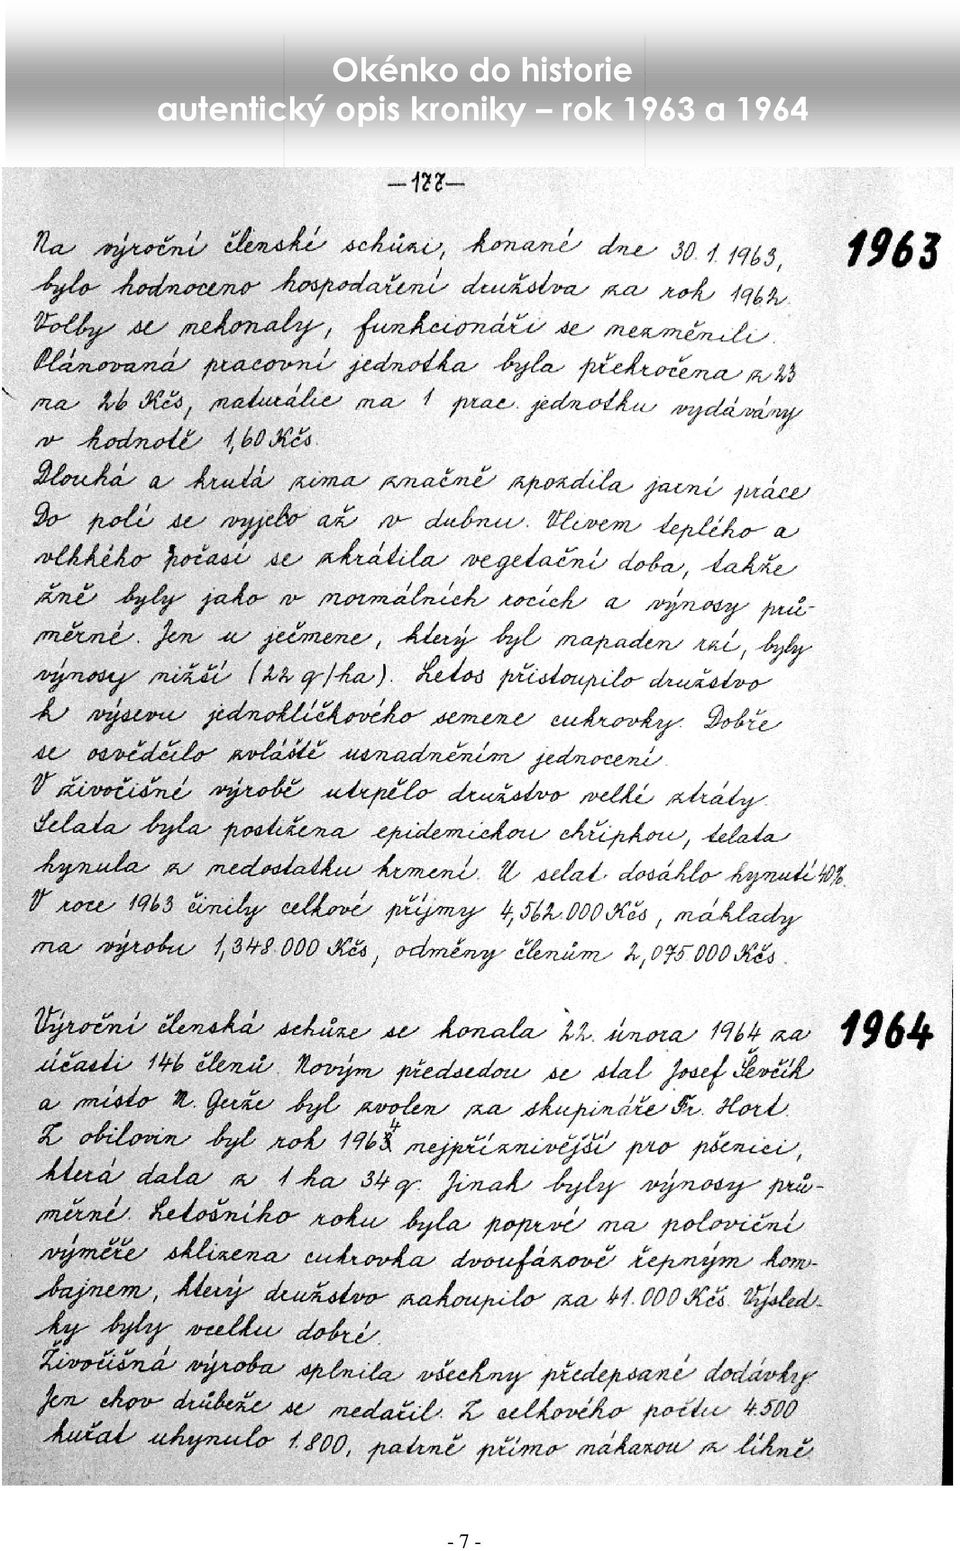 Okénko do historie
autentický opis kroniky – rok 1963 a 1964
—177—
1963
Na výroční členské schůzi, konané dne 30.1.1963,
bylo hodnoceno hospodaření družstva za rok 1962.
Volby se nekonaly, funkcionáři se nezměnili.
Plánovaná pracovní jednotka byla překročena z 23
na 26 Kčs, naturálie na 1 prac. jednotku vydávány
v hodnotě 1,60 Kčs.
Dlouhá a krutá zima značně zpozdila jarní práce
Do polí se vyjelo až v dubnu. Vlivem teplého a
vlhkého počasí se zkrátila vegetační doba, takže
žně byly jako v normálních rocích a výnosy prů-
měrné. Jen u ječmene, který byl napaden rzí, byly
výnosy nižší (22 q/ha). Letos přistoupilo družstvo
k výsevu jednoklíčkového semene cukrovky. Dobře
se osvědčilo zvláště usnadněním jednocení.
V živočišné výrobě utrpělo družstvo velké ztráty.
Selata byla postižena epidemickou chřipkou, telata
hynula z nedostatku krmení. U selat dosáhlo hynutí 40%.
V roce 1963 činily celkové příjmy 4,562.000 Kčs, náklady
na výrobu 1,348.000 Kčs, odměny členům 2,075.000 Kčs.
1964
Výroční členská schůze se konala 22. února 1964 za
účasti 146 členů. Novým předsedou se stal Josef Ševčík
a místo N. Gerže byl zvolen za skupináře Fr. Hort.
Z obilovin byl rok 1964 nejpříznivější pro pšenici,
která dala z 1 ha 34 q. Jinak byly výnosy prů-
měrné. Letošního roku byla poprvé na poloviční
výměře sklizena cukrovka dvoufázově řepným kom-
bajnem, který družstvo zakoupilo za 41.000 Kčs. Výsled-
ky byly vcelku dobré.
Živočišná výroba splnila všechny předepsané dodávky.
Jen chov drůbeže se nedařil. Z celkového počtu 4.500
kuřat uhynulo 1.800, patrně přímo nákazou z líhně.
- 7 -